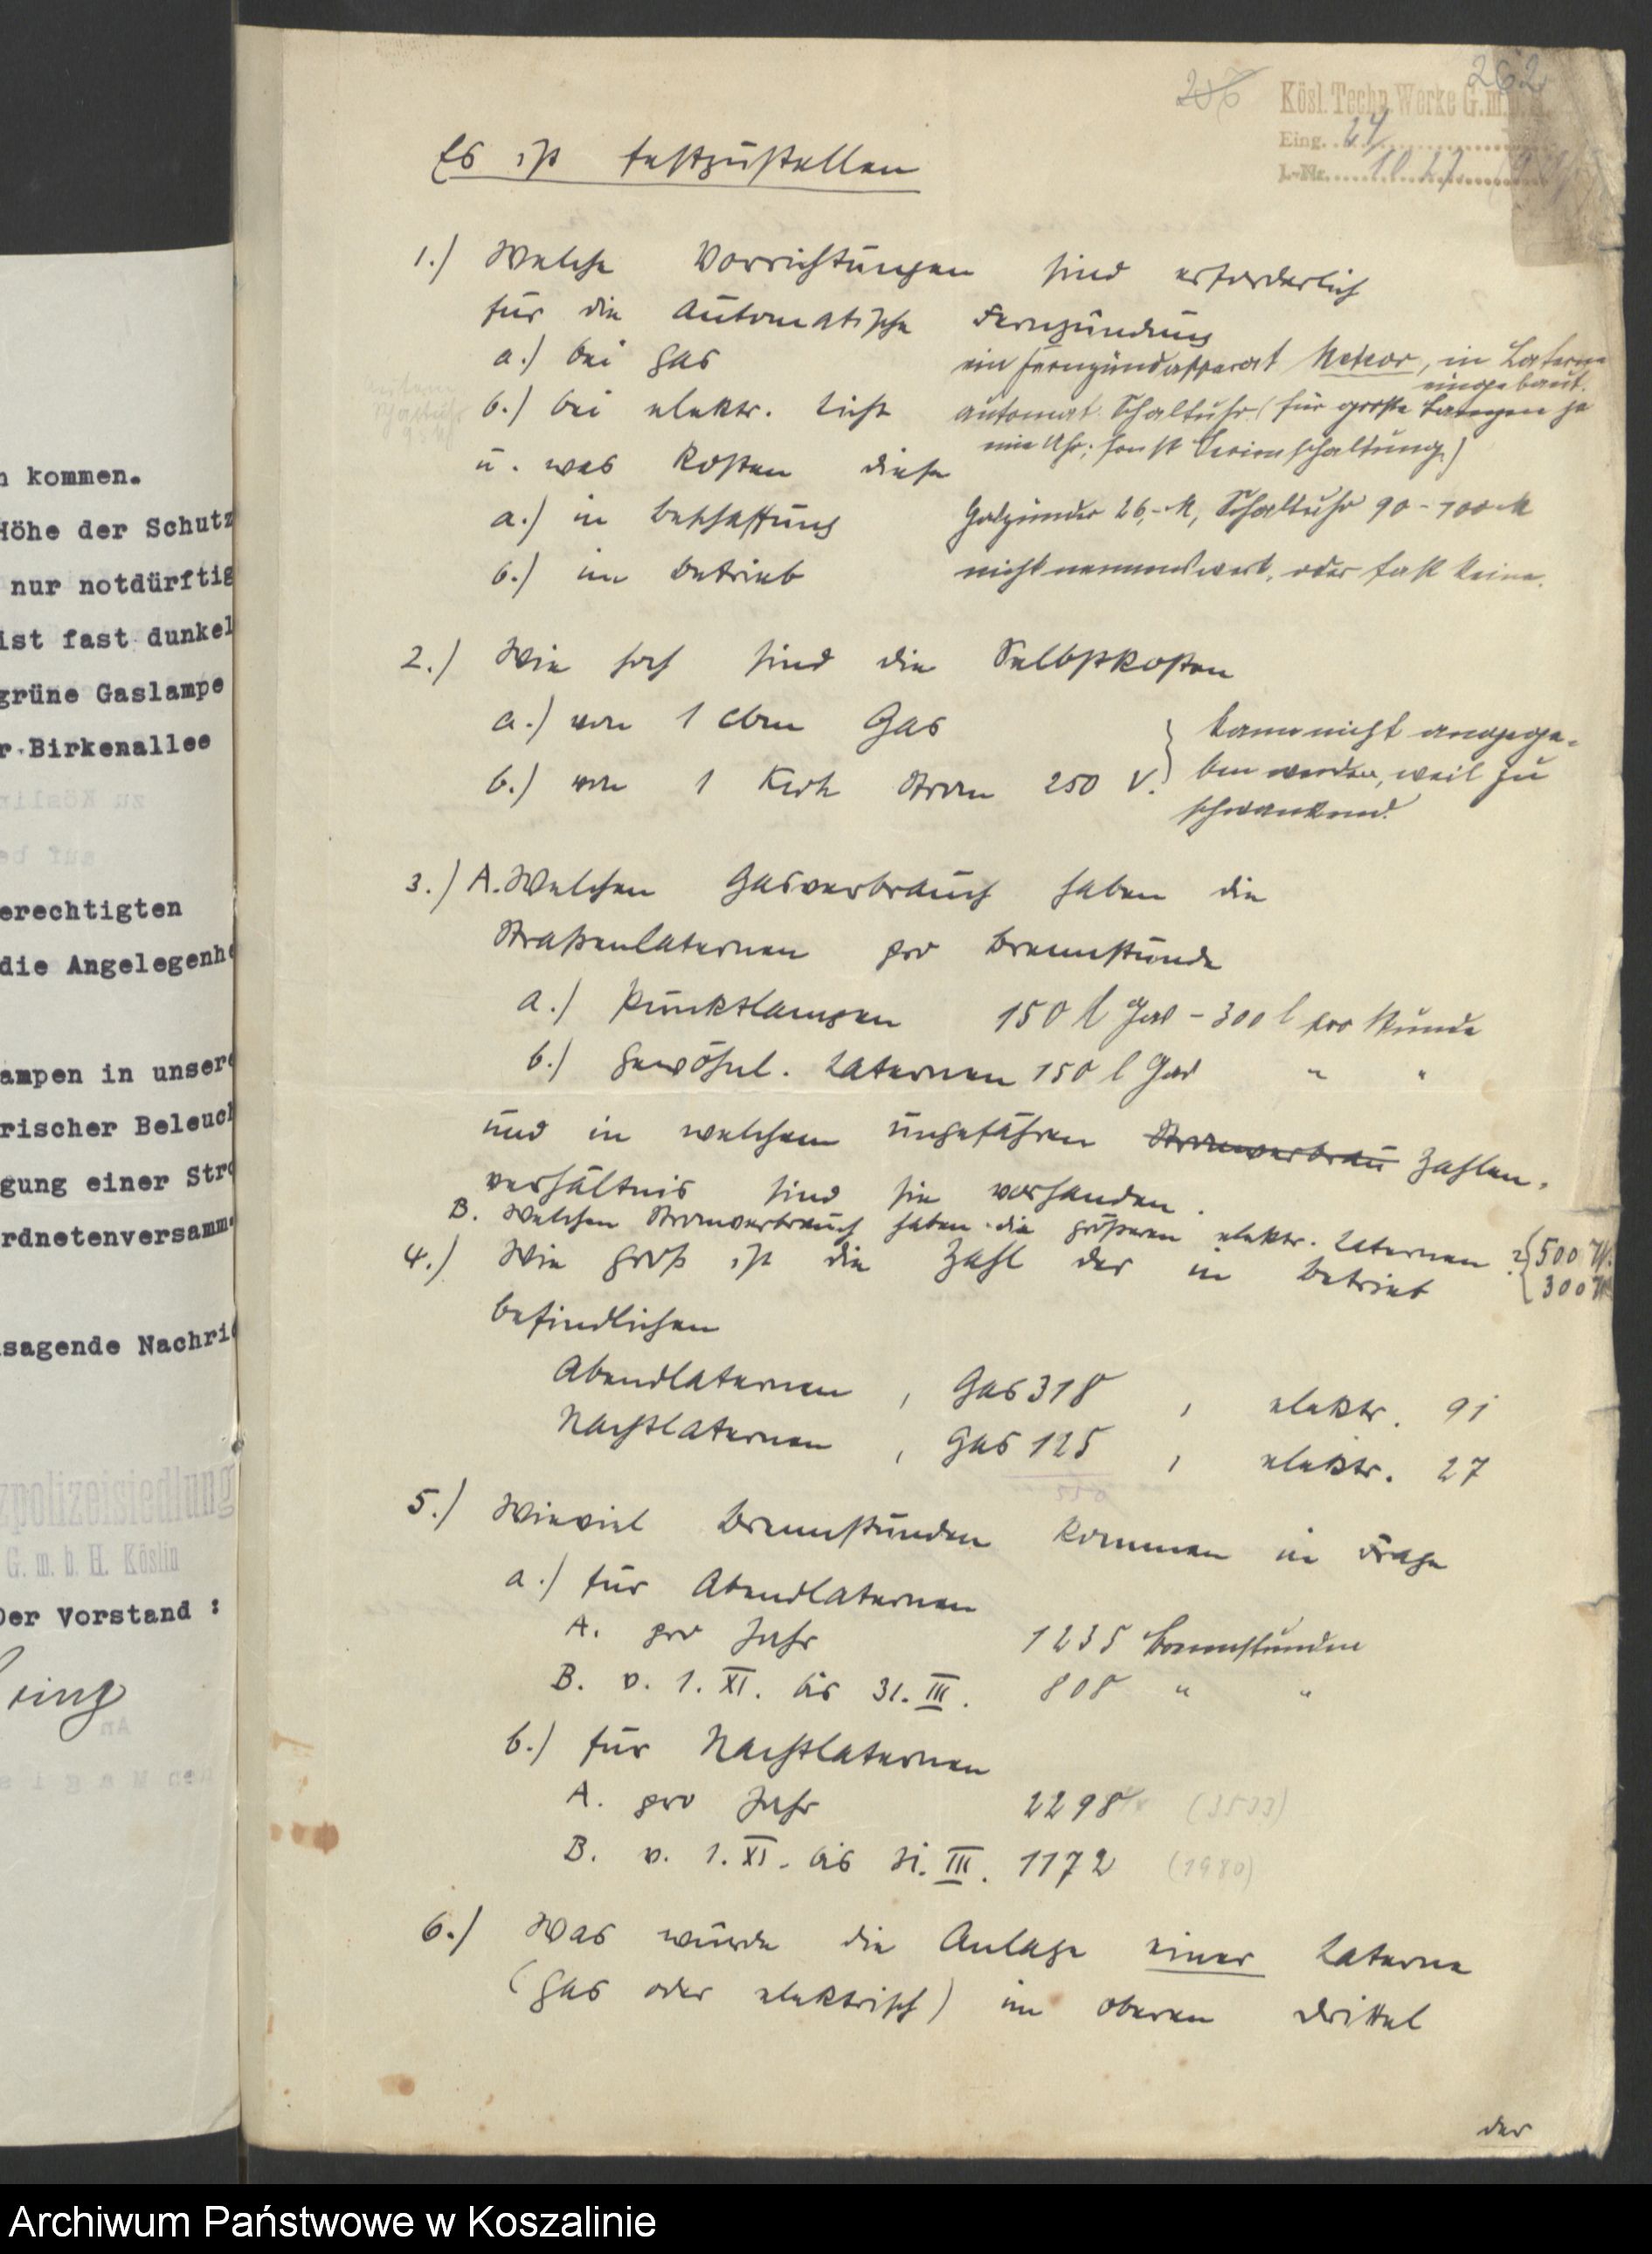 n kommen.
Höhe der Schutz
nur notdürftig
ist fast dunkel
grüne Gaslampe
r Birkenallee
erechtigten
die Angelegenhe
ampen in unsere
rischer Beleuch
gung einer Stro
rdnetenversamm
sagende Nachric
zpolizeisiedlung
G. m. b. H. Köslin
Der Vorstand :
262
Kösl. Techn. Werke G.m.b.H.
Eing. 24/
J.-Nr. 10. 27.
Es ist festzustellen
1.) Welche Vorrichtungen sind erforderlich
für die automatische Fernzündung
a.) bei Gas ein Fernzündapparat Meteor, in Laterne
eingebaut.
b.) bei elektr. Licht automat. Schaltuhr (für große Lampen je
eine Uhr; sonst Serienschaltung)
u. was kosten diese
a.) in Beschaffung Gaszünder 26,- M, Schaltuhr 90 - 100 M
b.) im Betrieb nicht nennenswert, oder fast keine.
2.) Wie hoch sind die Selbstkosten
a.) von 1 cbm Gas } kann nicht angege-
b.) von 1 Kwh Strom 250 V. } ben werden, weil zu
schwankend.
3.) A. Welchen Gasverbrauch haben die
Straßenlaternen pro Brennstunde
a.) Punktlampen 150 l Gas - 300 l pro Stunde
b.) gewöhnl. Laternen 150 l Gas " "
und in welchem ungefähren Stromverbrau Zahlen-
verhältnis sind sie vorhanden.
B. Welchen Stromverbrauch haben die größeren elektr. Laternen ? { 500 W.
{ 300 W
4.) Wie groß ist die Zahl der in Betrieb
befindlichen
Abendlaternen , Gas 318 , elektr. 91
Nachtlaternen , Gas 125 , elektr. 27
5.) Wieviel Brennstunden kommen in Frage
a.) für Abendlaternen
A. pro Jahr 1235 Brennstunden
B. v. 1. XI. bis 31. III. 808 " "
b.) für Nachtlaternen
A. pro Jahr 2298 (3533)
B. v. 1. XI. bis 31. III. 1172 (1980)
6.) Was würde die Anlage einer Laterne
(Gas oder elektrisch) im oberen Drittel
der
Archiwum Państwowe w Koszalinie